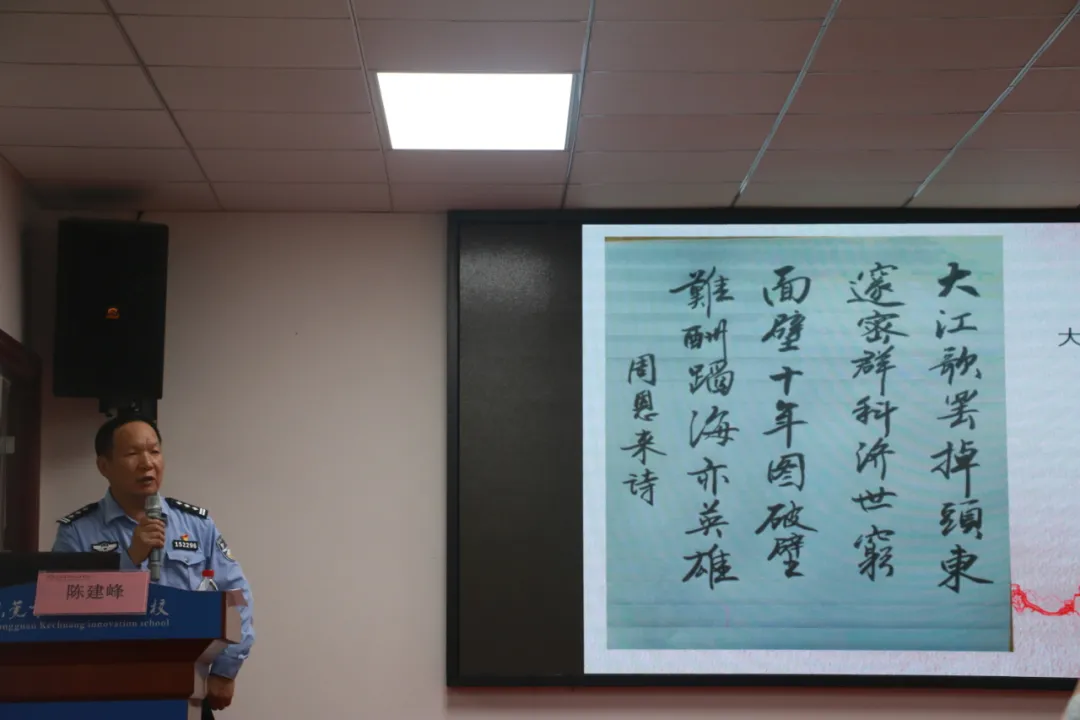 大江歌罢掉頭東
邃密群科济世窮
面壁十年图破壁
難酬蹈海亦英雄
周恩来诗
大
152296
陈建峰
校
ongguan Kechuang innovation school